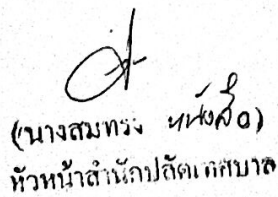 (นางสมทรง หนังสือ)
หัวหน้าสำนักปลัดเทศบาล